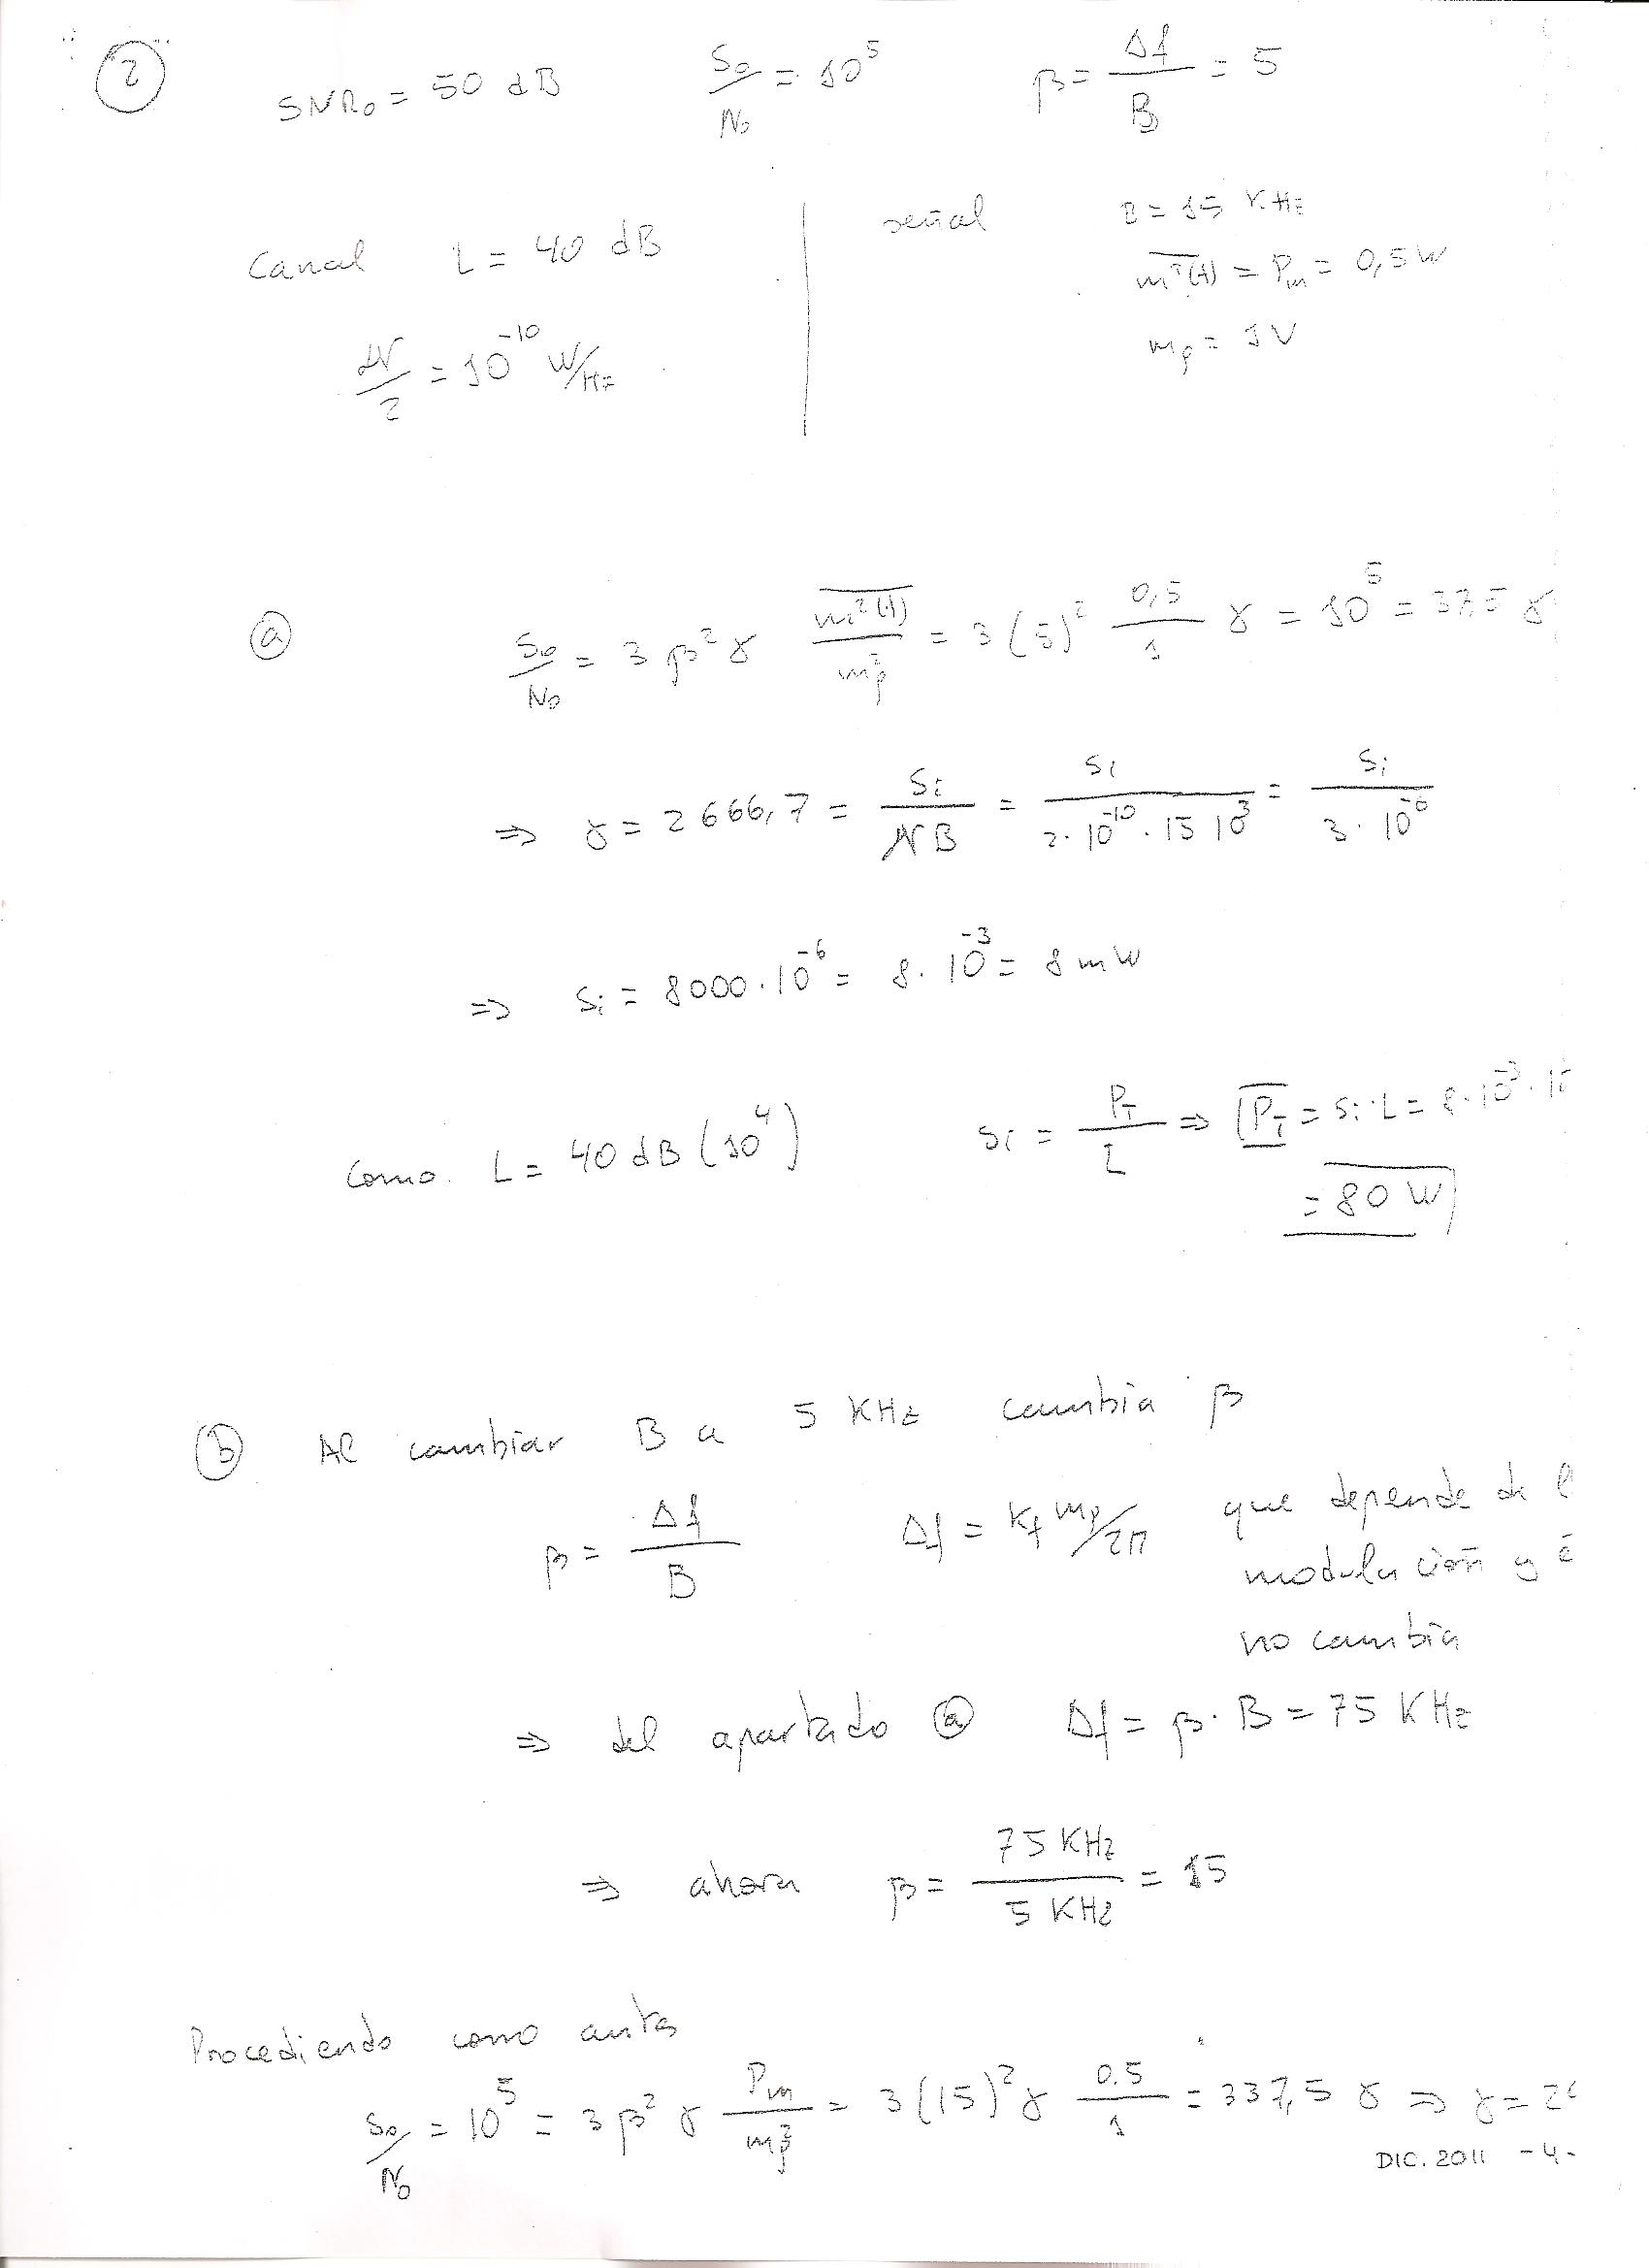 ② SNR₀ = 50 dB   S₀/N₀ = 10⁵   β = Δf/B = 5
Canal   L = 40 dB
𝒩/2 = 10⁻¹⁰ W/Hz
señal   B = 15 KHz
m²(t) = Pm = 0,5 W
mp = 1 V
ⓐ S₀/N₀ = 3 β² γ m²(t)/mp² = 3 (5)² 0,5/1 γ = 10⁵ = 37,5 γ
⇒ γ = 2666,7 = Si/𝒩B = Si/2·10⁻¹⁰·15 10³ = Si/3·10⁻⁶
⇒ Si = 8000·10⁻⁶ = 8·10⁻³ = 8 mW
Como L = 40 dB (10⁴)   Si = PT/L ⇒ PT = Si·L = 8·10⁻³·
= 80 W
ⓑ Al cambiar B a 5 KHz cambia β
β = Δf/B   Δf = Kf mp/2π   que depende de
modulación y
no cambia
⇒ del apartado ⓐ   Δf = β·B = 75 KHz
⇒ ahora   β = 75 KHz/5 KHz = 15
Procediendo como antes
S₀/N₀ = 10⁵ = 3 β² γ Pm/mp² = 3 (15)² γ 0.5/1 = 337,5 γ ⇒ γ = 2
DIC. 2011   -4-